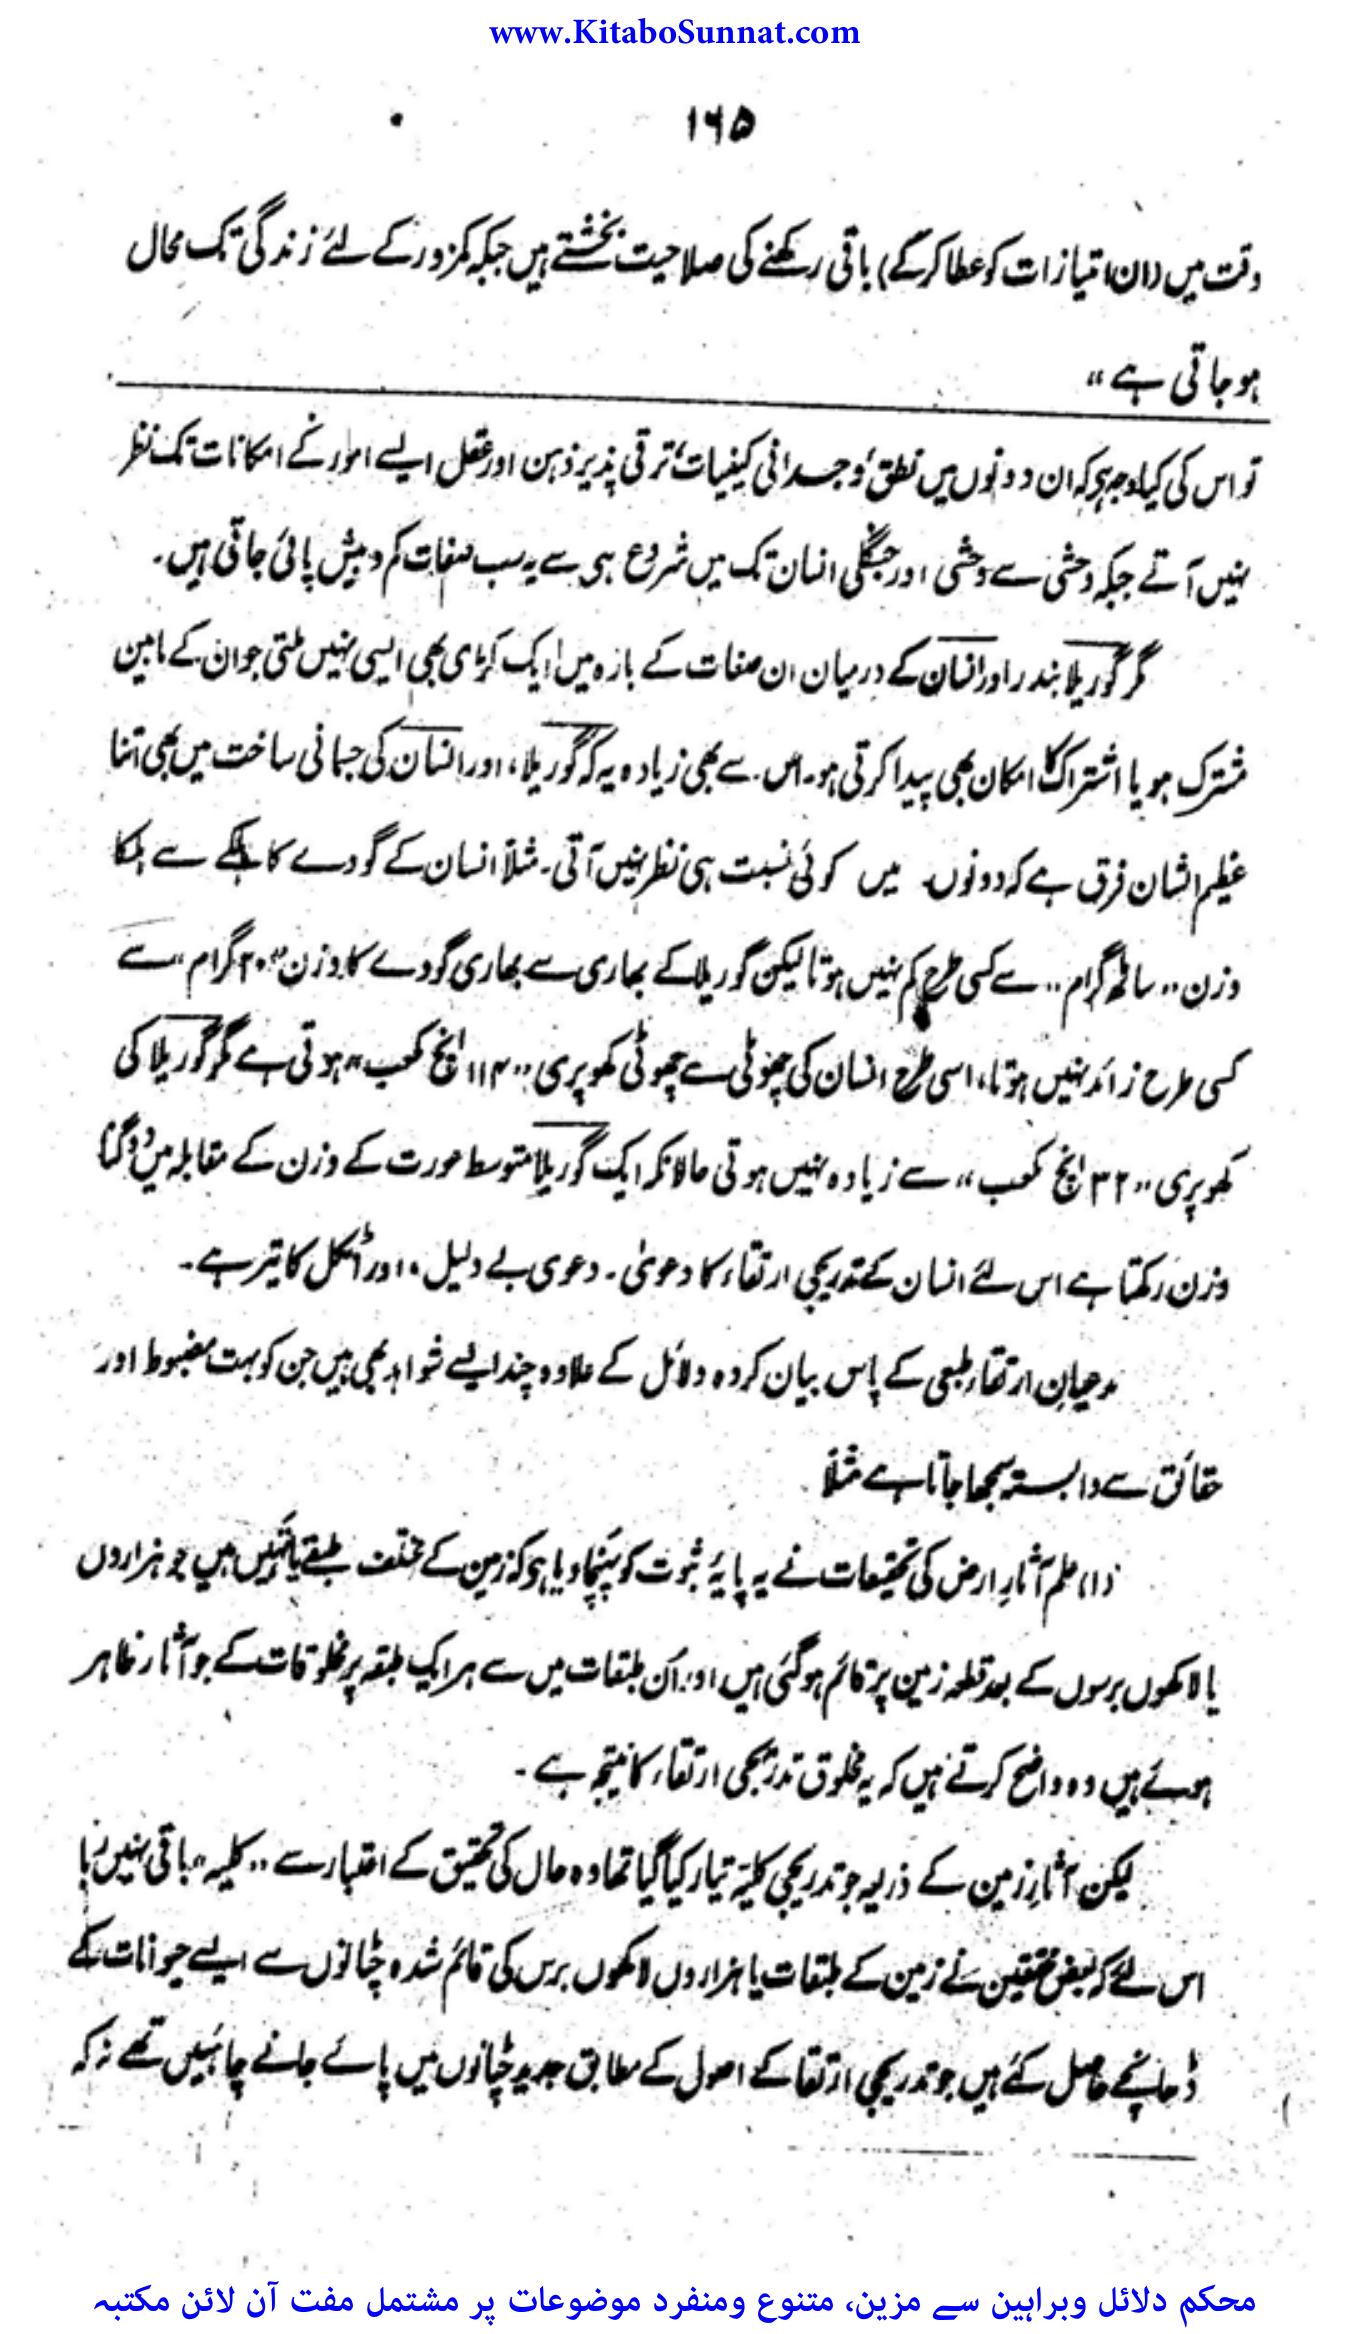 www.KitaboSunnat.com
۱۶۵
وقت میں (ان امتیازات کو عطا کر کے) باقی رکھنے کی صلاحیت بخشتے ہیں جبکہ کمزور کے لئے زندگی تک محال
ہو جاتی ہے "
تو اس کی کیا وجہ ہے کہ ان دونوں میں نطق، وجدانی کیفیات، ترقی پذیر ذہن اور عقل ایسے امور کے امکانات تک نظر
نہیں آتے جبکہ وحشی سے وحشی اور جنگلی انسان تک میں شروع ہی سے یہ سب صفات کم و بیش پائی جاتی ہیں۔
مگر گوریلا بندر اور انسان کے درمیان ان صفات کے بارہ میں ایک کڑی بھی ایسی نہیں ملتی جو ان کے مابین
مشترک ہو یا اشتراک کا امکان بھی پیدا کرتی ہو۔ اس سے بھی زیادہ یہ کہ گوریلا، اور انسان کی جسمانی ساخت میں بھی اتنا
عظیم الشان فرق ہے کہ دونوں میں کوئی نسبت ہی نظر نہیں آتی۔ مثلاً انسان کے گودے کا ہلکے سے ہلکا
وزن ,, ساٹھ گرام ,, سے کسی طرح کم نہیں ہوتا لیکن گوریلا کے بھاری سے بھاری گودے کا وزن "۲۰ گرام" سے
کسی طرح زائد نہیں ہوتا، اسی طرح انسان کی چھوٹی سے چھوٹی کھوپری ,,۱۱۴ انچ کعب" ہوتی ہے مگر گوریلا کی
کھوپری ,,۳۲ انچ کعب" سے زیادہ نہیں ہوتی حالانکہ ایک گوریلا متوسط عورت کے وزن کے مقابلہ میں دوگنا
وزن رکھتا ہے اس لئے انسان کے تدریجی ارتقاء کا دعویٰ۔ دعوی بے دلیل، اور اٹکل کا تیر ہے۔
مدعیانِ ارتقاء طبعی کے پاس بیان کردہ دلائل کے علاوہ چند ایسے شواہد بھی ہیں جن کو بہت مضبوط اور
حقائق سے وابستہ سمجھا جاتا ہے مثلاً
(۱) علم آثارِ ارض کی تحقیقات نے یہ پایۂ ثبوت کو پہنچا دیا ہے کہ زمین کے مختلف طبقے یا تہیں ہیں جو ہزاروں
یا لاکھوں برسوں کے بعد قطعہ زمین پر قائم ہو گئی ہیں اور ان طبقات میں سے ہر ایک طبقہ پر مخلوقات کے جو آثار ظاہر
ہوئے ہیں وہ واضح کرتے ہیں کہ یہ مخلوق تدریجی ارتقاء کا نتیجہ ہے۔
لیکن آثارِ زمین کے ذریعہ جو تدریجی کلیہ تیار کیا گیا تھا وہ حال کی تحقیق کے اعتبار سے ,,کلیہ" باقی نہیں رہا
اس لئے کہ بعض محققین نے زمین کے طبقات یا ہزاروں لاکھوں برس کی قائم شدہ چٹانوں سے ایسے حیوانات کے
ڈھانچے حاصل کئے ہیں جو تدریجی ارتقا کے اصول کے مطابق جدید چٹانوں میں پائے جانے چاہئیں تھے نہ کہ
محکم دلائل وبراہین سے مزین، متنوع ومنفرد موضوعات پر مشتمل مفت آن لائن مکتبہ